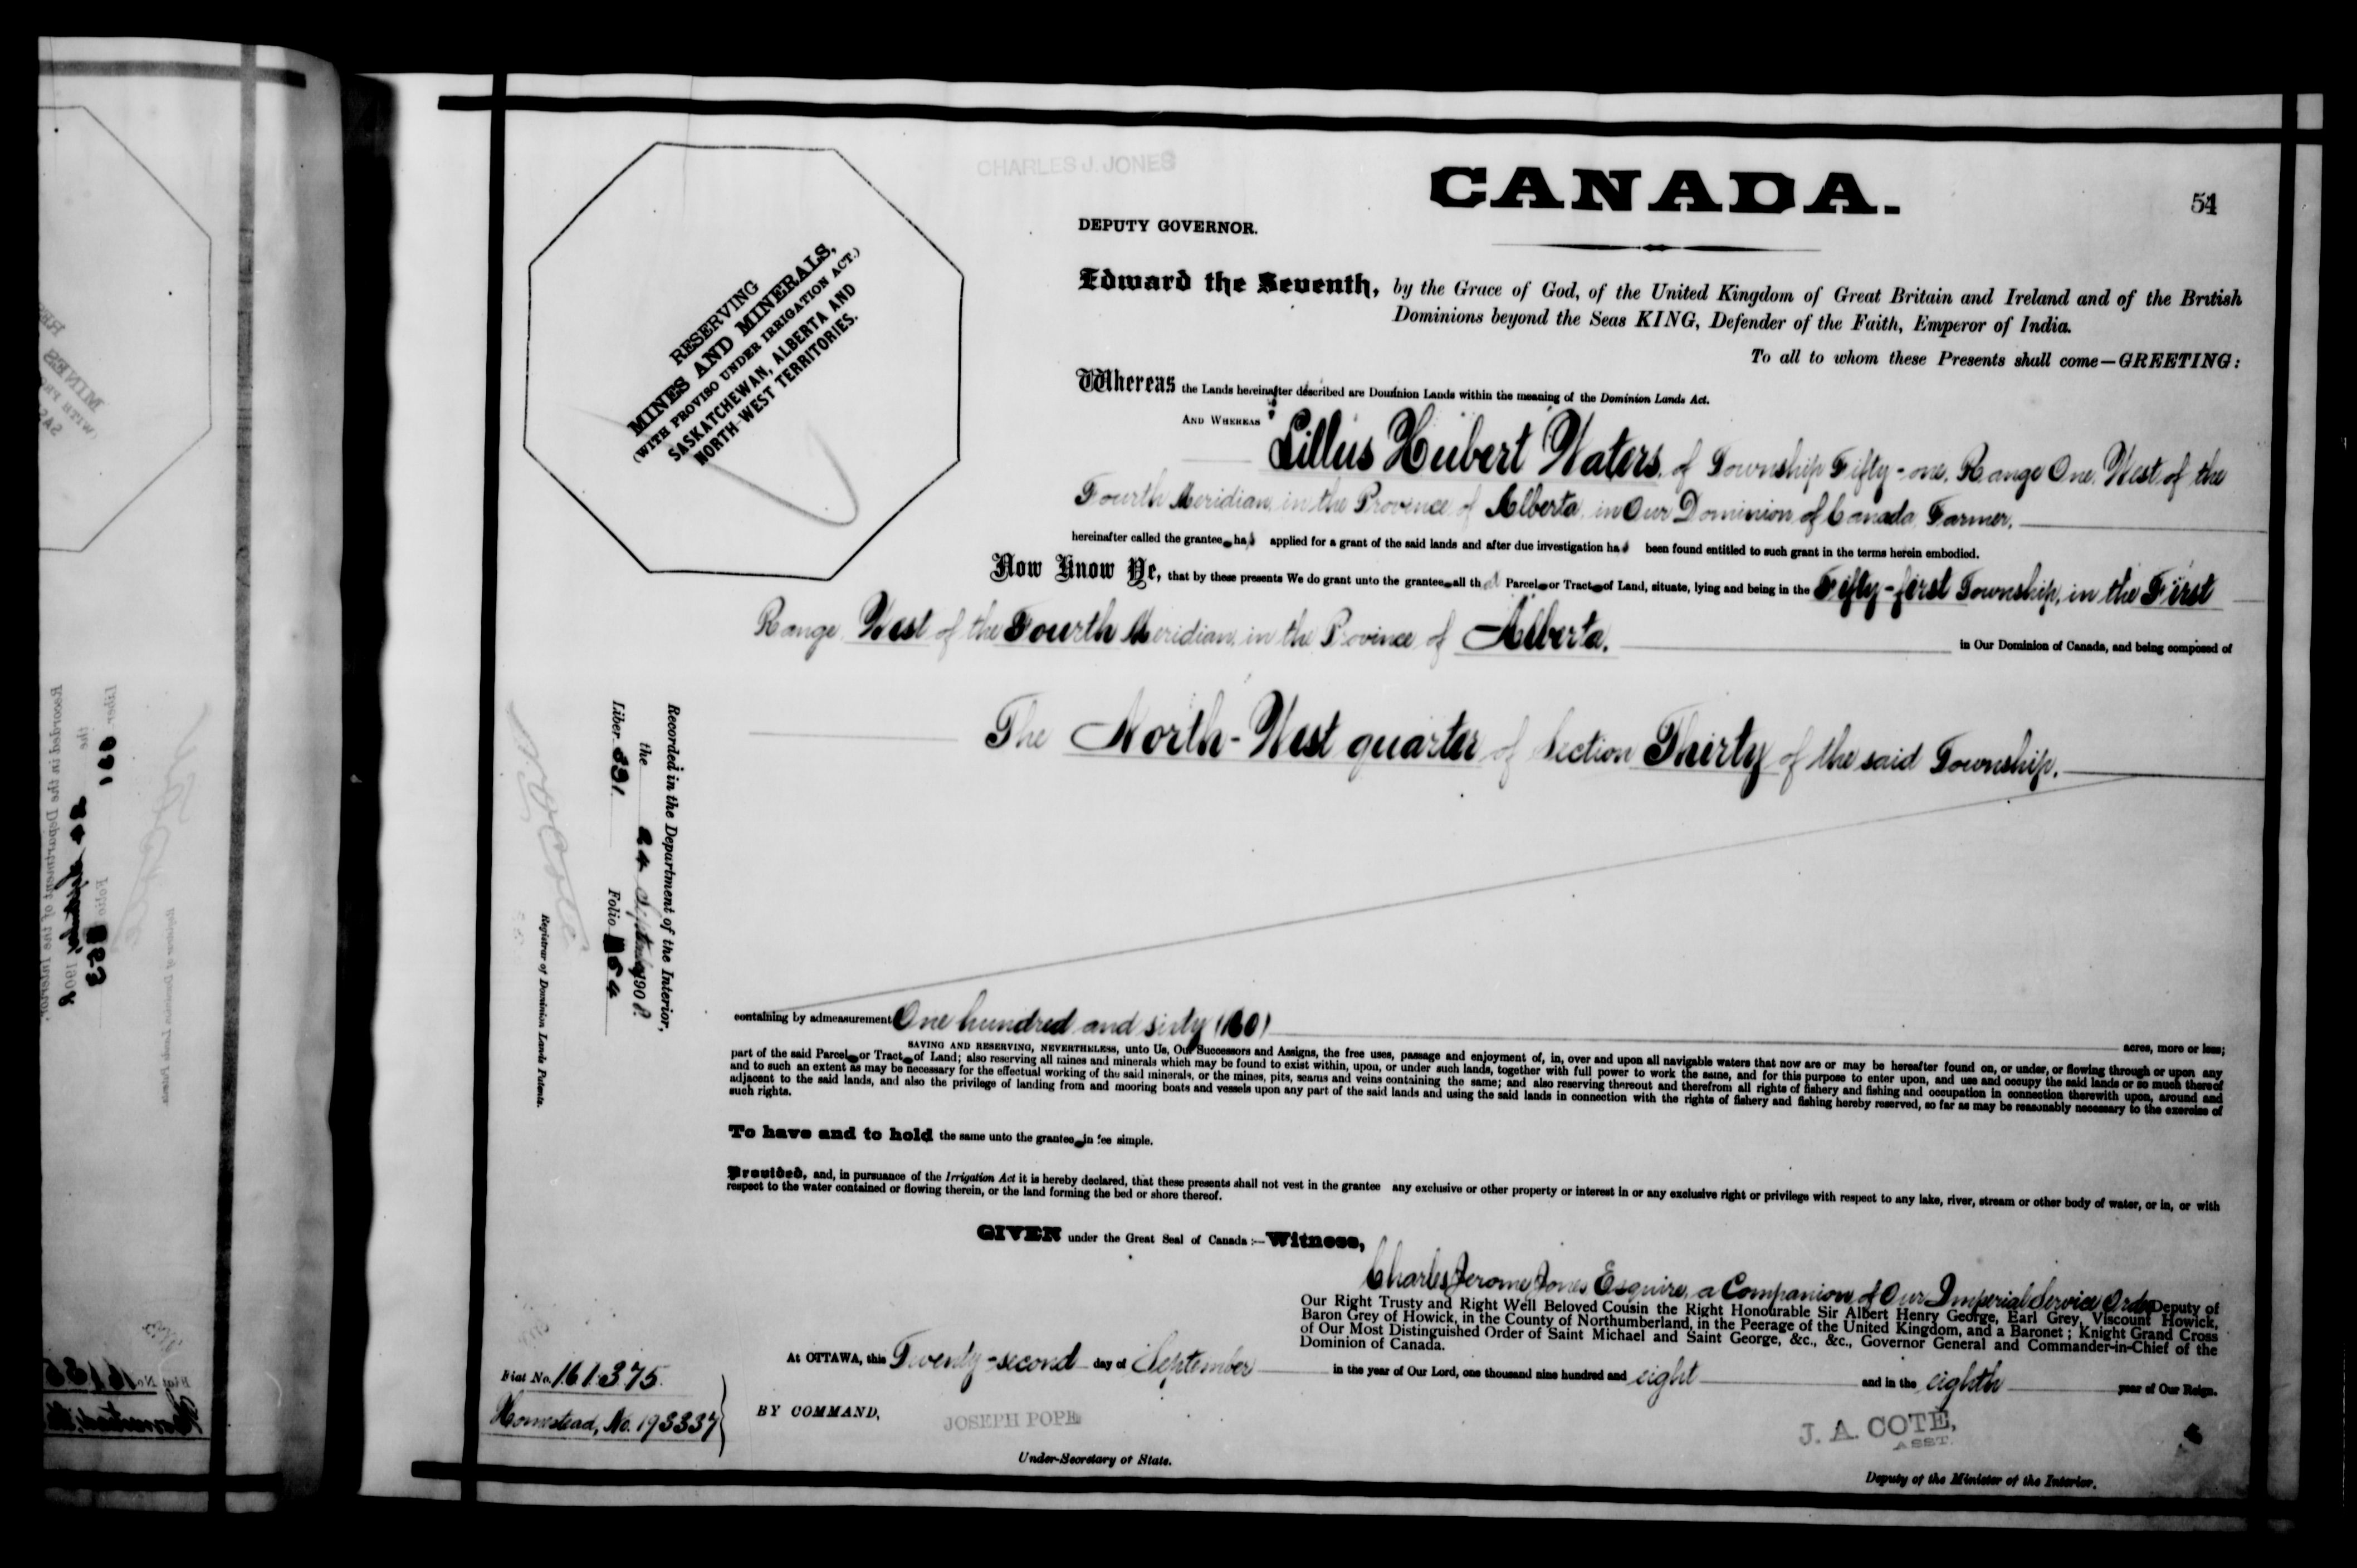 CHARLES J. JONES
CANADA.
54
DEPUTY GOVERNOR.
RESERVING
MINES AND MINERALS,
(WITH PROVISO UNDER IRRIGATION ACT.)
SASKATCHEWAN, ALBERTA AND
NORTH-WEST TERRITORIES.
Edward the Seventh, by the Grace of God, of the United Kingdom of Great Britain and Ireland and of the British
Dominions beyond the Seas KING, Defender of the Faith, Emperor of India.
To all to whom these Presents shall come—GREETING:
Whereas the Lands hereinafter described are Dominion Lands within the meaning of the Dominion Lands Act.
AND WHEREAS
Lillus Hubert Waters, of Township Fifty-one, Range One, West of the
Fourth Meridian, in the Province of Alberta, in Our Dominion of Canada, Farmer,
hereinafter called the grantee has applied for a grant of the said lands and after due investigation has been found entitled to such grant in the terms herein embodied.
Now Know Ye, that by these presents We do grant unto the grantee all that Parcel or Tract of Land, situate, lying and being in the Fifty-first Township, in the First
Range West of the Fourth Meridian, in the Province of Alberta, in Our Dominion of Canada, and being composed of
The North-West quarter of Section Thirty of the said Township,
Recorded in the Department of the Interior,
the 24 September 1908
Liber 391 Folio 54
Registrar of Dominion Lands Patents.
containing by admeasurement One hundred and sixty (160) acres, more or less;
SAVING AND RESERVING, NEVERTHELESS, unto Us, Our Successors and Assigns, the free uses, passage and enjoyment of, in, over and upon all navigable waters that now are or may be hereafter found on, or under, or flowing through or upon any
part of the said Parcel or Tract of Land; also reserving all mines and minerals which may be found to exist within, upon, or under such lands, together with full power to work the same, and for this purpose to enter upon, and use and occupy the said lands or so much thereof
and to such an extent as may be necessary for the effectual working of the said minerals, or the mines, pits, seams and veins containing the same; and also reserving thereout and therefrom all rights of fishery and fishing and occupation in connection therewith upon, around and
adjacent to the said lands, and also the privilege of landing from and mooring boats and vessels upon any part of the said lands and using the said lands in connection with the rights of fishery and fishing hereby reserved, so far as may be reasonably necessary to the exercise of
such rights.
To have and to hold the same unto the grantee in fee simple.
Provided, and, in pursuance of the Irrigation Act it is hereby declared, that these presents shall not vest in the grantee any exclusive or other property or interest in or any exclusive right or privilege with respect to any lake, river, stream or other body of water, or in, or with
respect to the water contained or flowing therein, or the land forming the bed or shore thereof.
GIVEN under the Great Seal of Canada:—Witness,
Charles Jerome Jones Esquire, a Companion of Our Imperial Service Order Deputy of
Our Right Trusty and Right Well Beloved Cousin the Right Honourable Sir Albert Henry George, Earl Grey, Viscount Howick,
Baron Grey of Howick, in the County of Northumberland, in the Peerage of the United Kingdom, and a Baronet; Knight Grand Cross
of Our Most Distinguished Order of Saint Michael and Saint George, &c., &c., Governor General and Commander-in-Chief of the
Dominion of Canada.
At OTTAWA, this Twenty-second day of September in the year of Our Lord, one thousand nine hundred and eight and in the eighth year of Our Reign.
Fiat No. 161375.
Homestead, No. 193337
BY COMMAND,
JOSEPH POPE
Under-Secretary of State.
J. A. COTE,
ASST.
Deputy of the Minister of the Interior.